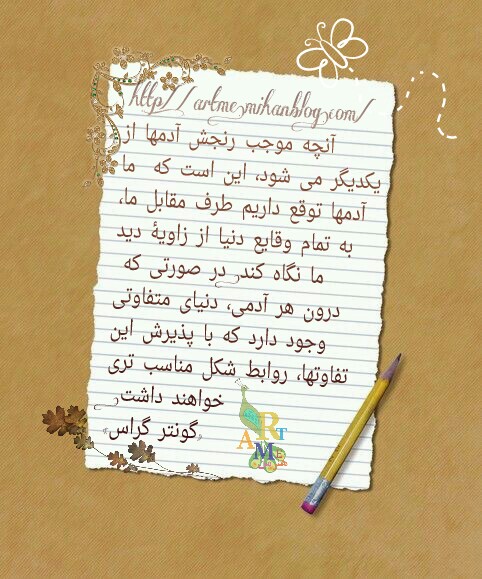 http://artme.mihanblog.com/
آنچه موجب رنجش آدمها از
یکدیگر می شود، این است که ما
آدمها توقع داریم طرف مقابل ما،
به تمام وقایع دنیا از زاویۀ دید
ما نگاه کند. در صورتی که
درون هر آدمی، دنیای متفاوتی
وجود دارد که با پذیرش این
تفاوتها، روابط شکل مناسب تری
خواهند داشت.
«گونتر گراس»
ART
ME